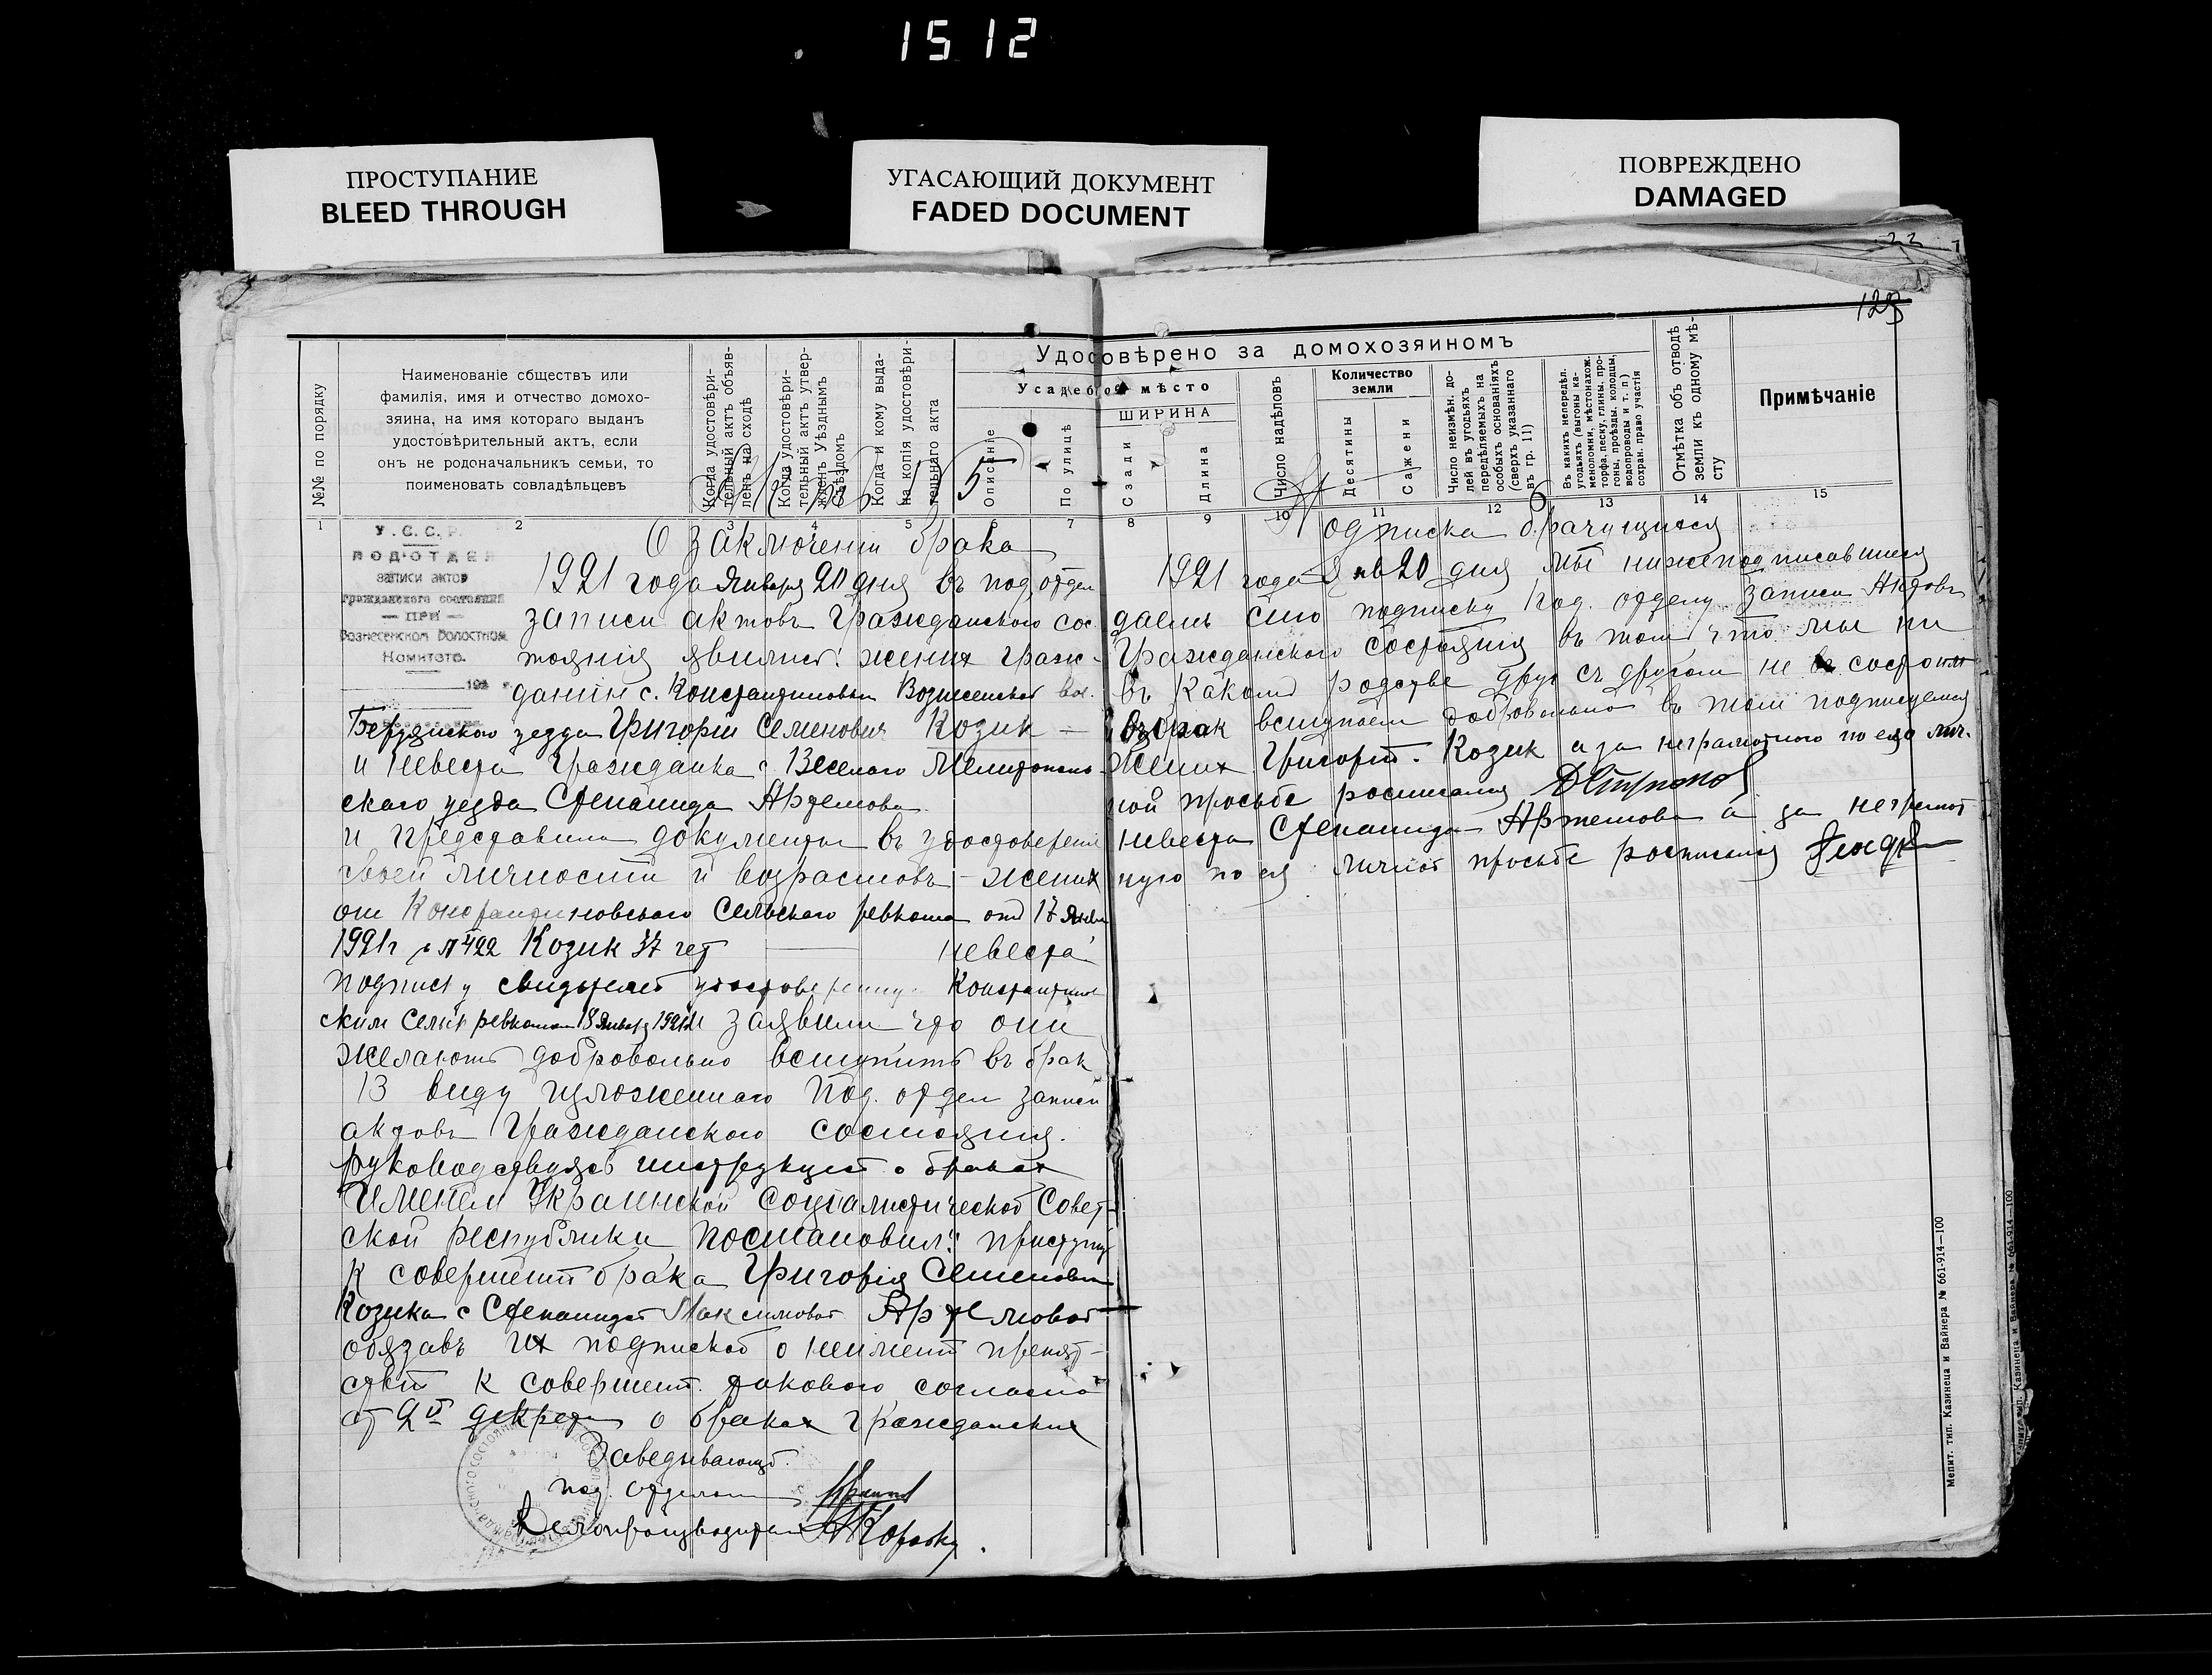 1512
ПРОСТУПАНИЕ
BLEED THROUGH
УГАСАЮЩИЙ ДОКУМЕНТ
FADED DOCUMENT
ПОВРЕЖДЕНО
DAMAGED
123
№№ по порядку
Наименованіе обществъ или
фамилія, имя и отчество домохо-
зяина, на имя котораго выданъ
удостовѣрительный актъ, если
онъ не родоначальникъ семьи, то
поименовать совладѣльцевъ
Когда удостовѣри-
тельный актъ объяв-
ленъ на сходѣ
Когда удостовѣри-
тельный актъ утвер-
жденъ Уѣзднымъ
съѣздомъ
Когда и кому выда-
на копія удостовѣри-
тельнаго акта
Удостовѣрено за домохозяиномъ
Усадебное мѣсто
Описаніе
По улицѣ
ШИРИНА
Сзади
Длина
Число надѣловъ
Количество
земли
Десятины
Сажени
Число неизмѣн. до-
лей въ угодьяхъ
передѣляемыхъ на
особыхъ основаніяхъ
(сверхъ указаннаго
въ гр. 11)
Въ какихъ непередѣл.
угодьяхъ (выгоны ка-
меноломни, мѣстонахож.
торфа, песку, глины, про-
гоны, проѣзды, колодцы,
водопроводы и т. п)
сохран. право участія
Отмѣтка объ отводѣ
земли къ одному мѣ-
сту
Примѣчаніе
1 2 3 4 5 6 7 8 9 10 11 12 13 14 15
5
У.С.С.Р.
ПОДОТДЕЛ
записи актов
гражданского состояния
— ПРИ —
Вознесенском Волостном
Комитете.
192 г.
О заключении брака
1921 года Января 20 дня въ под. отдел
записи актовъ Гражданского сос-
тоянія явились: жених Граж-
данин с. Константиновки Вознесенской вол.
Бердянского уезда Григорій Семенович Козик —
и невеста Гражданка с. Веселого Мелитополь-
скаго уезда Степанида Артемова
и представили документы въ удостоверении
своей личности и возрастовъ - жених
от Константиновского Сельского ревкома от 17 Января
1921 г № 422 Козик 37 лет — невеста
подписку свидетелей удостоверенную Константинов
ским Сельск ревкомом 18 Января 1921 г и заявили что они
желают добровольно вступить въ брак
В виду изложенного Под. отдел записи
актовъ Гражданского состояния.
руководствуясь инструкцией о браках
Именем Украинской Социалистической Совет-
ской республики постановил: приступить
к совершению брака Григорія Семеновича
Козика с Степанидой Максимовой Артемовой
обязавъ их подпиской о неимении препят-
ствий к совершени. такового согласно
ст 2й декрета о браках гражданских
Заведывающий
под. отделом
Делопроизводитель
Подписка брачущихся
1921 года Янв 20 дня мы нижеподписавшиеся
даемъ сию подписку Под. отделу записи Актовъ
Гражданского состояния въ том что мы ни
въ каком родстве друг съ другом не состоим
въ брак вступаем добровольно въ том подписуемся
Жених Григорий. Козик а за неграмотного по его лич-
ной просьбе росписался
невеста Степанида Артемова а за неграмот
ную по ея личной просьбе росписался
Мелит. тип. Казинеца и Вайнера № 661-914—100